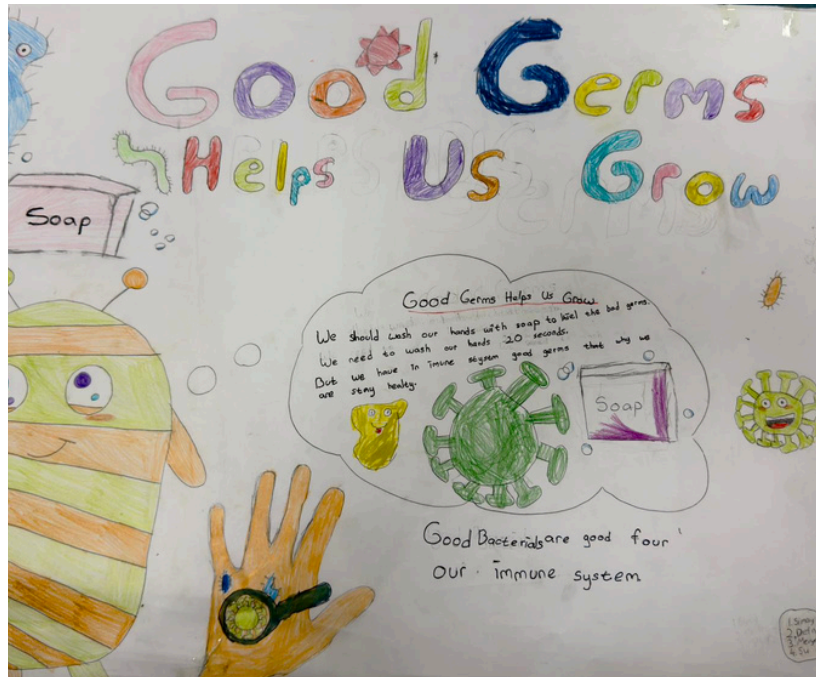 Good Germs
Helps Us Grow
Soap
Good Germs Helps Us Grow
We should wash our hands with soap to kiel the bad germs.
We need to wash our hands 20 seconds.
But we have in imune stysem good germs that why we
are stay healty.
Soap
Good Bacterials are good four
our immune system
1.
2.
3.
4. Su